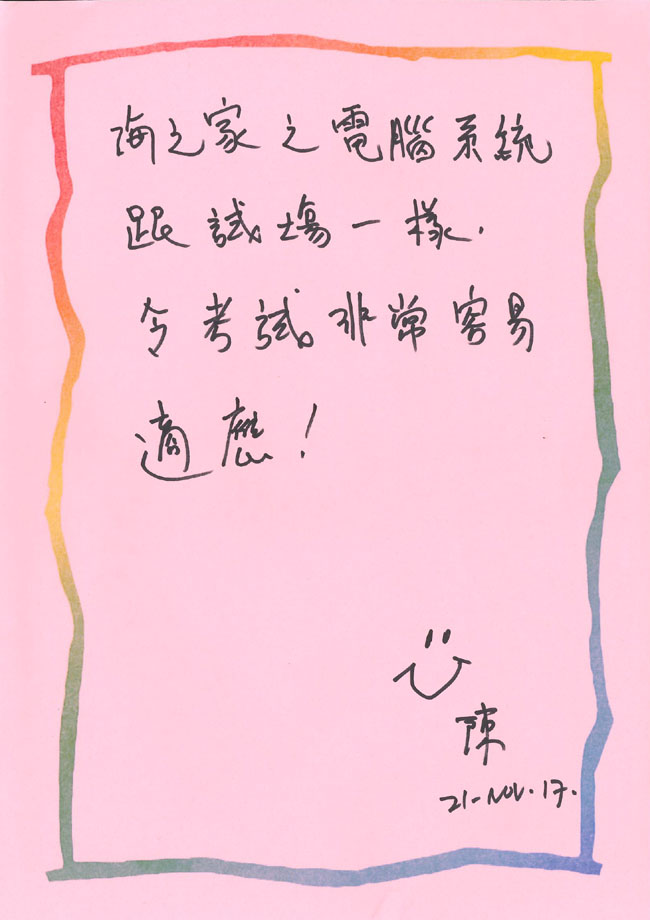 海之家之電腦系統
跟試場一樣.
令考試非常容易
適應！
陳
21-NOV.17.